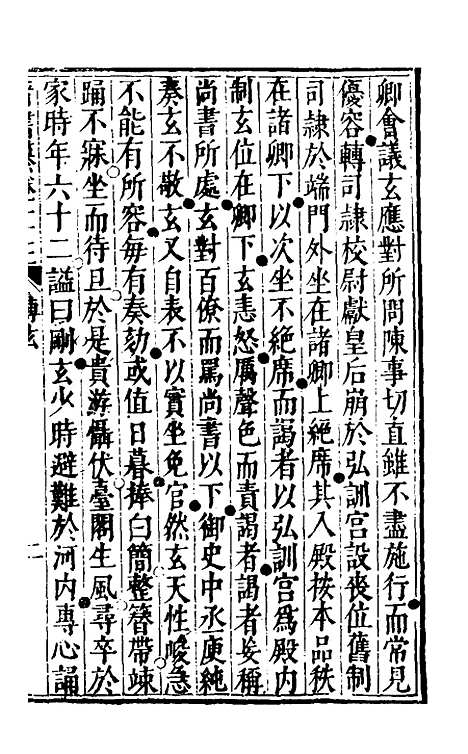 卿會議玄應對所問陳事切直雖不盡施行而常見
優容轉司隷校尉獻皇后崩於弘訓宫設喪位舊制
司隷於端門外坐在諸卿上絶席其入殿按本品秩
在諸卿下以次坐不絶席而謁者以弘訓宫爲殿内
制玄位在卿下玄恚怒厲聲色而責謁者謁者妄稱
尚書所處玄對百僚而罵尚書以下御史中丞庾純
奏玄不敬玄又自表不以實坐免官然玄天性峻急
不能有所容每有奏劾或值日暮捧白簡整簪帶竦
踊不寐坐而待旦於是貴游懾伏臺閣生風尋卒於
家時年六十二謚曰剛玄少時避難於河内專心誦
傅玄